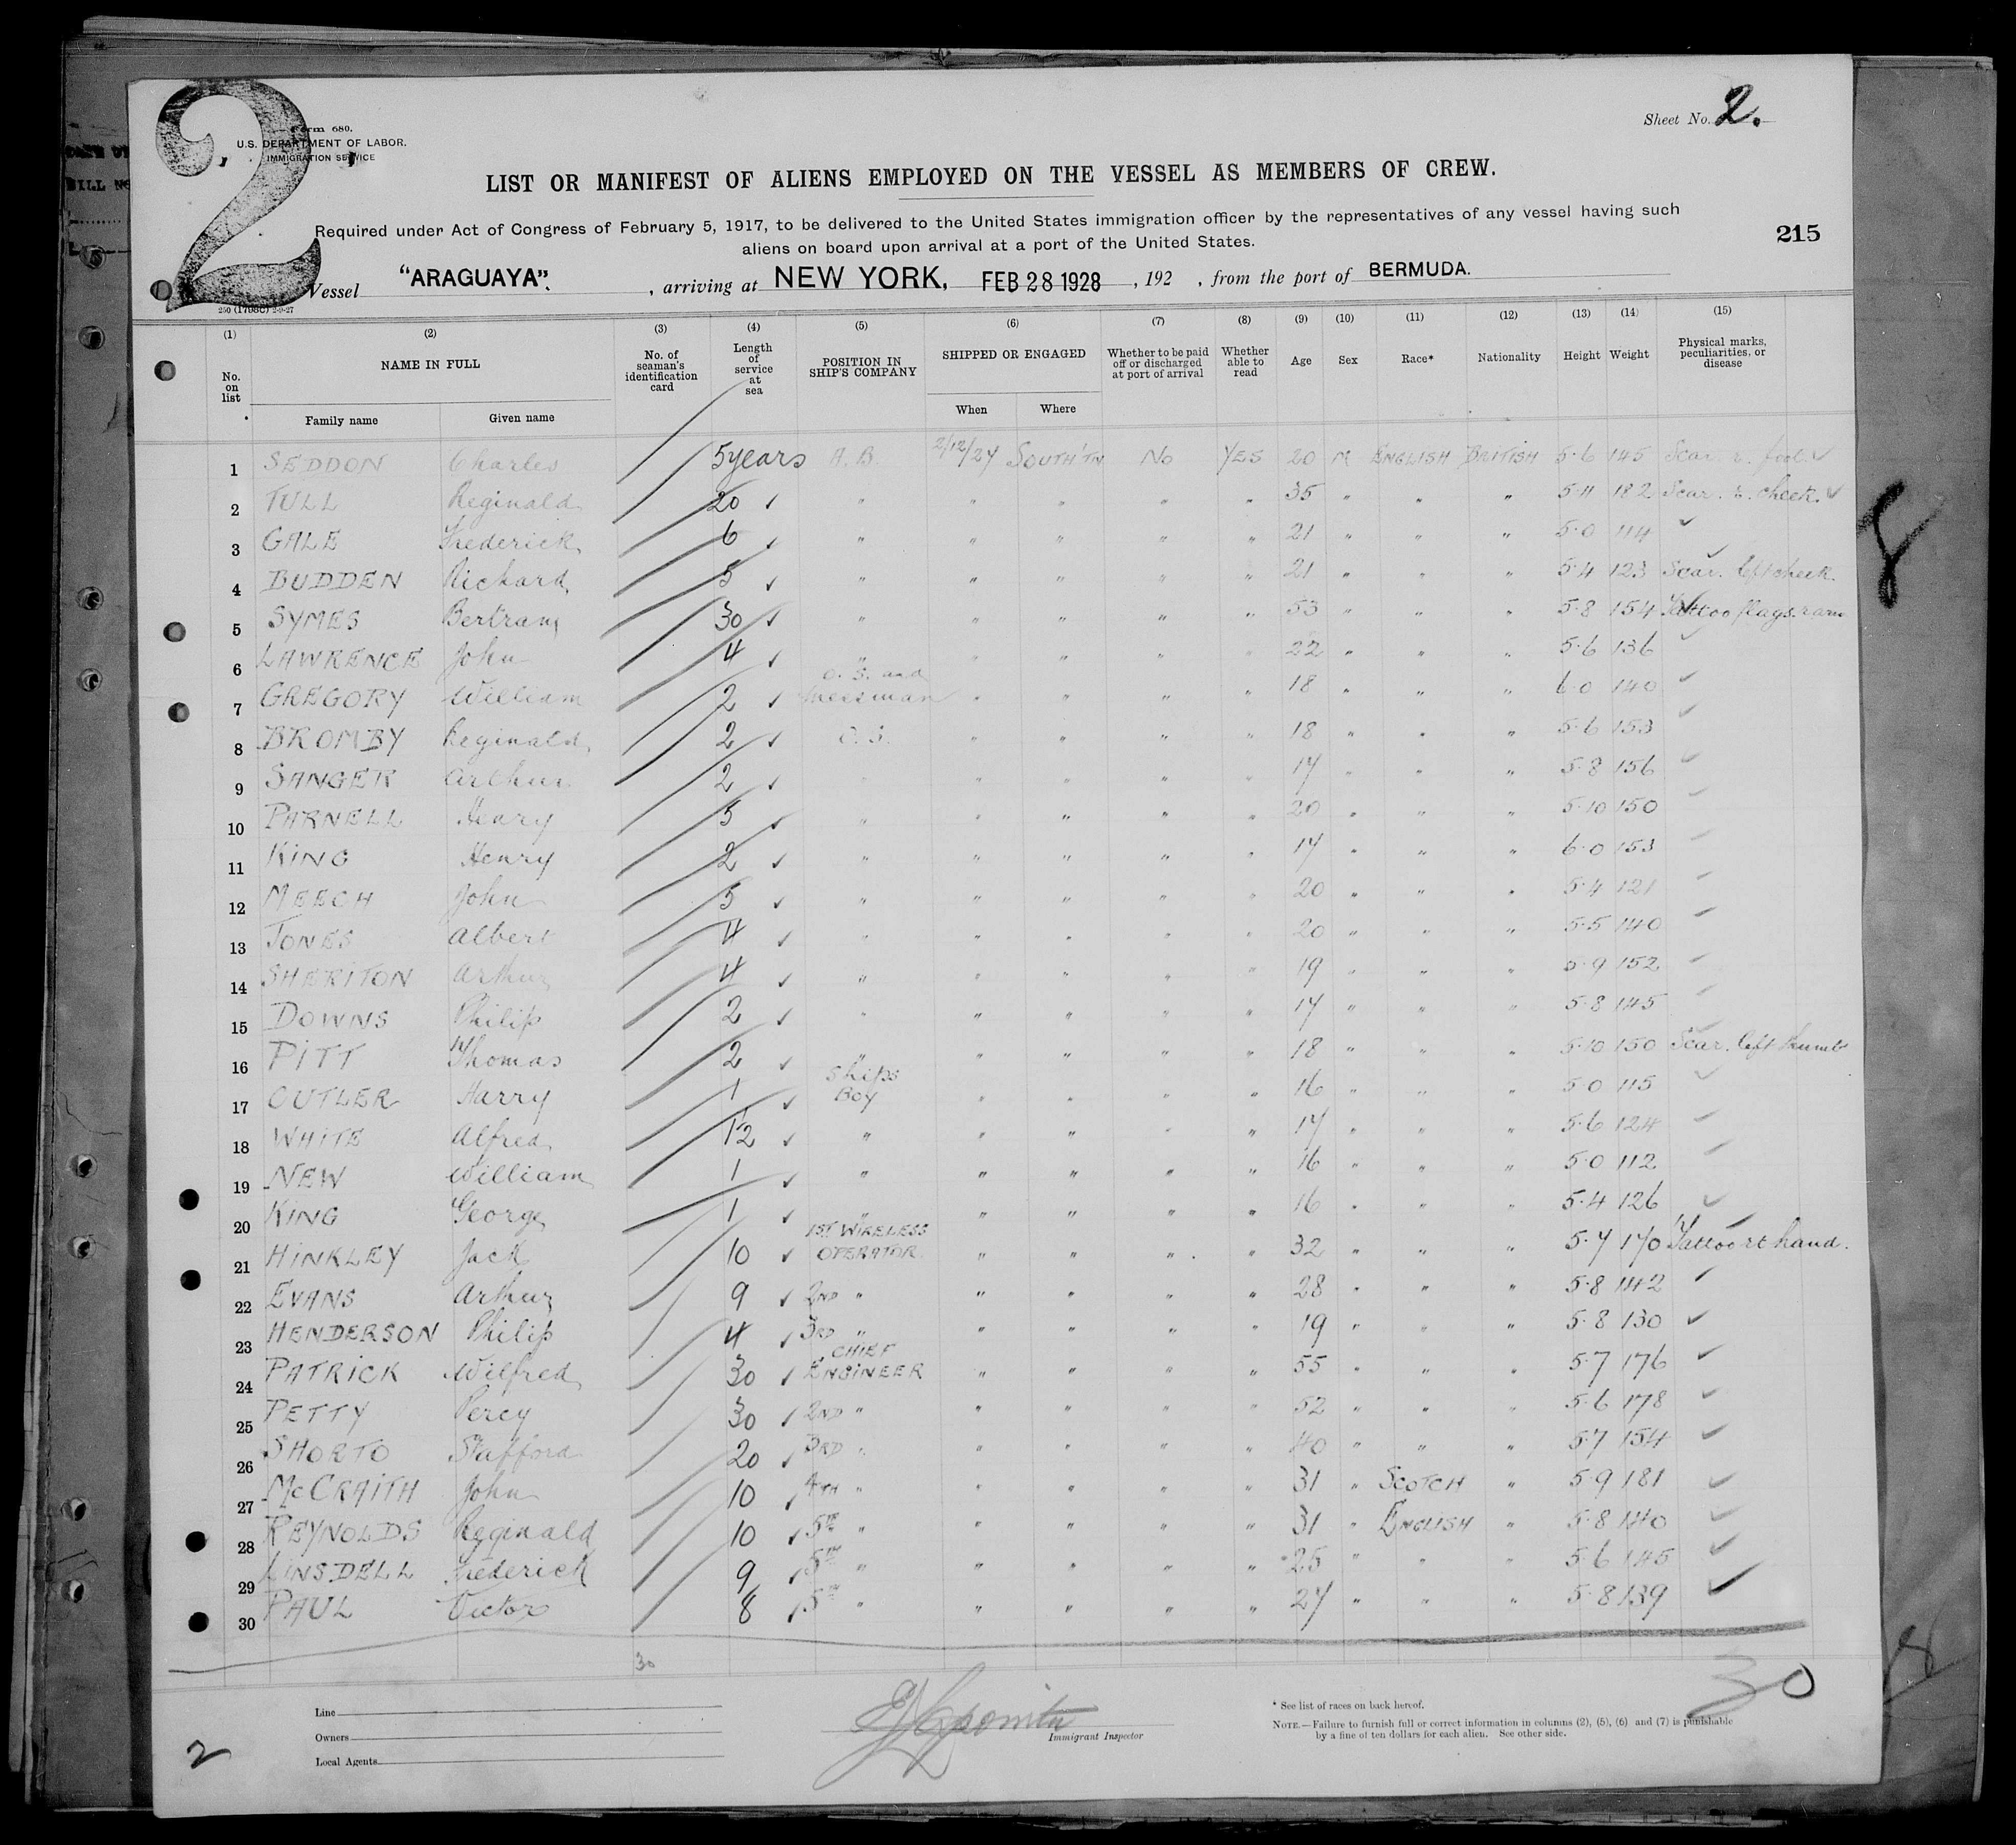 2
Form 680.
U.S. DEPARTMENT OF LABOR.
IMMIGRATION SERVICE
Sheet No. 2.
LIST OR MANIFEST OF ALIENS EMPLOYED ON THE VESSEL AS MEMBERS OF CREW.
Required under Act of Congress of February 5, 1917, to be delivered to the United States immigration officer by the representatives of any vessel having such
aliens on board upon arrival at a port of the United States.
215
Vessel "ARAGUAYA". , arriving at NEW YORK, FEB 28 1928 , 192 , from the port of BERMUDA.
(1) (2) (3) (4) (5) (6) (7) (8) (9) (10) (11) (12) (13) (14) (15)
No. on list NAME IN FULL Family name Given name No. of seaman's identification card Length of service at sea POSITION IN SHIP'S COMPANY SHIPPED OR ENGAGED When Where Whether to be paid off or discharged at port of arrival Whether able to read Age Sex Race* Nationality Height Weight Physical marks, peculiarities, or disease
1 SEDDON Charles 5 years A.B. 2/12/27 SOUTH'TN No YES 20 M ENGLISH BRITISH 5·6 145 Scar. r. foot. ✓
2 TULL Reginald 20 ✓ " " " " " 35 " " " 5·11 182 Scar. r. cheek. ✓
3 GALE Frederick 6 ✓ " " " " " 21 " " " 5·0 114 ✓
4 BUDDEN Richard 5 ✓ " " " " " 21 " " " 5·4 123 Scar. left cheek.
5 SYMES Bertram 30 ✓ " " " " " 53 " " " 5·8 154 Tattoo flags. r arm
6 LAWRENCE John 4 ✓ " " " " " 22 " " " 5·6 136 ✓
7 GREGORY William 2 ✓ O.S. and Messman " " " " 18 " " " 6·0 140 ✓
8 BROMBY Reginald 2 ✓ O.S. " " " " 18 " " " 5·6 153 ✓
9 SANGER Arthur 2 ✓ " " " " " 17 " " " 5·8 156 ✓
10 PARNELL Henry 5 ✓ " " " " " 20 " " " 5·10 150 ✓
11 KING Henry 2 ✓ " " " " " 17 " " " 6·0 153 ✓
12 MEECH John 5 ✓ " " " " " 20 " " " 5·4 121 ✓
13 JONES Albert 4 ✓ " " " " " 20 " " " 5·5 140 ✓
14 SHERITON Arthur 4 ✓ " " " " " 19 " " " 5·9 152 ✓
15 DOWNS Philip 2 ✓ " " " " " 17 " " " 5·8 145 ✓
16 PITT Thomas 2 ✓ " " " " " 18 " " " 5·10 150 Scar. left thumb
17 CUTLER Harry 1 ✓ Ships Boy " " " " 16 " " " 5·0 115 ✓
18 WHITE Alfred 1½ ✓ " " " " " 17 " " " 5·6 124 ✓
19 NEW William 1 ✓ " " " " " 16 " " " 5·0 112 ✓
20 KING George 1 ✓ " " " " " 16 " " " 5·4 126 ✓
21 HINKLEY Jack 10 ✓ 1ST WIRELESS OPERATOR. " " " " 32 " " " 5·7 170 Tattoo rt hand.
22 EVANS Arthur 9 ✓ 2ND " " " " " 28 " " " 5·8 142 ✓
23 HENDERSON Philip 4 ✓ 3RD " " " " " 19 " " " 5·8 130 ✓
24 PATRICK Wilfred 30 ✓ CHIEF ENGINEER " " " " 55 " " " 5·7 176 ✓
25 PETTY Percy 30 ✓ 2ND " " " " " 52 " " " 5·6 178 ✓
26 SHORTO Stafford 20 ✓ 3RD " " " " " 40 " " " 5·7 154 ✓
27 McCRAITH John 10 ✓ 4TH " " " " " 31 " SCOTCH " 5·9 181 ✓
28 REYNOLDS Reginald 10 ✓ 5TH " " " " " 31 " ENGLISH " 5·8 140 ✓
29 LINSDELL Frederick 9 ✓ 5TH " " " " " 25 " " " 5·6 145 ✓
30 PAUL Victor 8 ✓ 5TH " " " " " 27 " " " 5·8 139 ✓
30
30
Line
Owners
Local Agents
Immigrant Inspector
* See list of races on back hereof.
NOTE.—Failure to furnish full or correct information in columns (2), (5), (6) and (7) is punishable
by a fine of ten dollars for each alien. See other side.
2
8